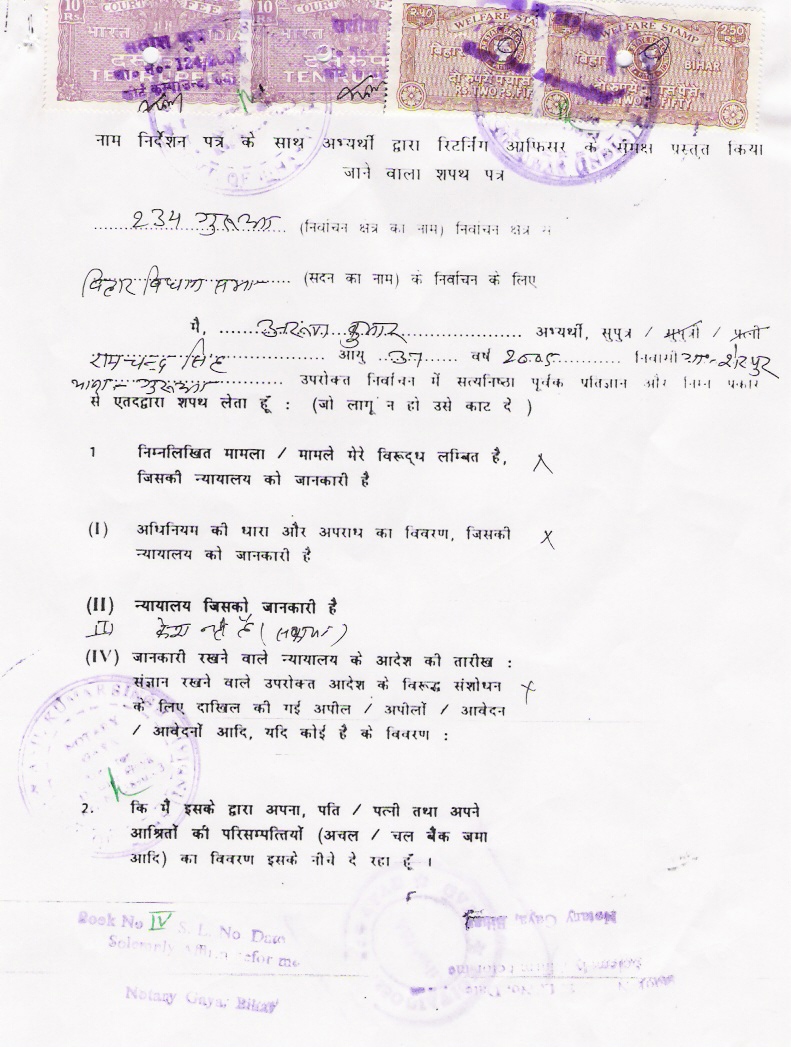 10 COURT FEE 10 COURT FEE WELFARE STAMP WELFARE STAMP 2.50
Rs. भारत INDIA Rs. भारत बिहार BIHAR
TEN RUPEES TEN RUPEES RS. TWO PS. FIFTY TWO FIFTY
नाम निर्देशन पत्र के साथ अभ्यर्थी द्वारा रिटर्निंग आफिसर के समक्ष प्रस्तुत किया
जाने वाला शपथ पत्र
234 गुरुआ (निर्वाचन क्षेत्र का नाम) निर्वाचन क्षेत्र से
बिहार विधान सभा (सदन का नाम) के निर्वाचन के लिए
मै, कुमार अभ्यर्थी, सुपुत्र / सुपुत्री / पत्नी
रामचन्द्र सिंह आयु 37 वर्ष 2005 निवासी ग्रा०- शेरपुर
थाना - गुरुआ उपरोक्त निर्वाचन में सत्यनिष्ठा पूर्वक प्रतिज्ञान और निम्न प्रकार
से एतदद्वारा शपथ लेता हूँ : (जो लागू न हो उसे काट दे )
1 निम्नलिखित मामला / मामले मेरे विरूद्ध लम्बित है, X
जिसकी न्यायालय को जानकारी है
(I) अधिनियम की धारा और अपराध का विवरण, जिसकी X
न्यायालय को जानकारी है
(II) न्यायालय जिसको जानकारी है
III केश नहीं है
(IV) जानकारी रखने वाले न्यायालय के आदेश की तारीख :
संज्ञान रखने वाले उपरोक्त आदेश के विरूद्ध संशोधन X
के लिए दाखिल की गई अपील / अपीलों / आवेदन
/ आवेदनों आदि, यदि कोई है के विवरण :
2. कि मैं इसके द्वारा अपना, पति / पत्नी तथा अपने
आश्रितों की परिसम्पत्तियों (अचल / चल बैंक जमा
आदि) का विवरण इसके नीचे दे रहा हूँ ।
Book No IV S. L. No Date
Solemnly before me
Notary Gaya, Bihar